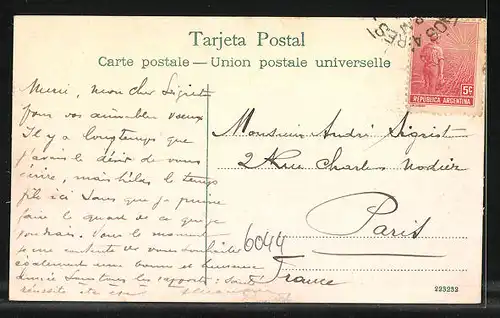 Tarjeta Postal
Carte postale — Union postale universelle
5c
REPUBLICA ARGENTINA
Merci, mon cher Sigrist
pour vos aimables voeux
Il y a longtemps que
j'avais le désir de vous
écrire, mais hélas le temps
file ici sans que je puisse
faire le quart de ce que je
voudrais. Pour le moment
je me contente de vous souhaiter
également une bonne et heureuse
année sous tous les rapports: santé
réussite etc
Monsieur André Sigrist
2 Rue Charles Nodier
Paris
France
6044
223252